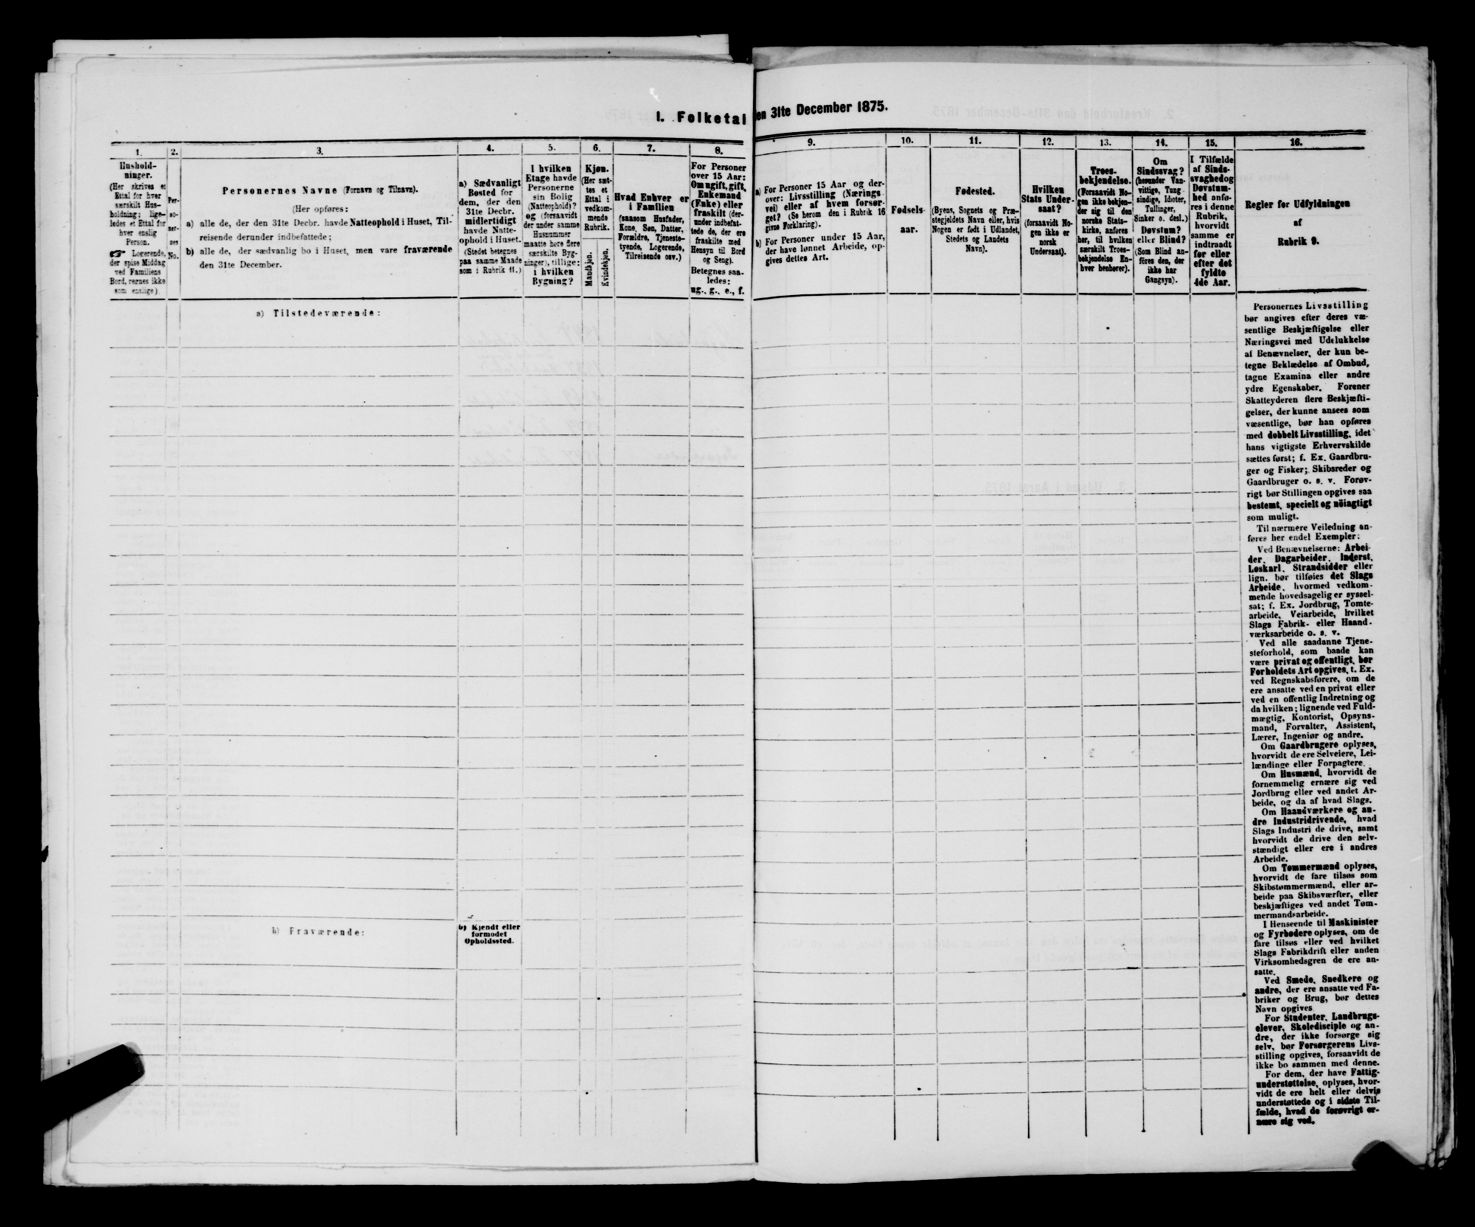 I. Folketal
en 31te December 1875.
1.
Hushold-
ninger.
(Her skrives et
Ettal for hver
særskilt Hus-
holdning; lige-
ledes et Ettal for
hver enslig
Person.
☞ Logerende,
der spise Middag
ved Familiens
Bord, regnes ikke
som enslige)
2.
Per-
so-
ner-
nes
No.
3.
Personernes Navne (Fornavn og Tilnavn).
(Her opføres:
a) alle de, der den 31te Decbr. havde Natteophold i Huset, Til-
reisende derunder indbefattede;
b) alle de, der sædvanlig bo i Huset, men vare fraværende
den 31te December.
4.
a) Sædvanligt
Bosted for
dem, der den
31te Decbr.
midlertidigt
havde Natte-
ophold i Huset.
(Stedet betegnes
paa samme Maade
som i Rubrik 11.)
5.
I hvilken
Etage havde
Personerne
sin Bolig
(Natteophold)?
og (forsaavidt
der under samme
Husnummer
maatte høre flere
særskilte Byg-
ninger), tillige:
i hvilken
Bygning?
6.
Kjøn.
(Her sæt-
tes et
Ettal i
vedkom-
mende
Rubrik.
Mandkjøn.
Kvindekjøn.
7.
Hvad Enhver er
i Familien
(saasom Husfader,
Kone, Søn, Datter,
Forældre, Tjeneste-
tyende, Logerende,
Tilreisende osv.)
8.
For Personer
over 15 Aar:
Om ugift, gift,
Enkemand
(Enke) eller
fraskilt (der-
under indbefat-
tede de, der ere
fraskilte med
Hensyn til Bord
og Seng).
Betegnes saa-
ledes:
ug., g., e., f.
9.
a) For Personer 15 Aar og der-
over: Livsstilling (Nærings-
vei) eller af hvem forsør-
get? (Se herom den i Rubrik 16
givne Forklaring).
b) For Personer under 15 Aar,
der have lønnet Arbeide, op-
gives dettes Art.
10.
Fødsels-
aar.
11.
Fødested.
(Byens, Sognets og Præ-
stegjeldets Navn eller, hvis
Nogen er født i Udlandet,
Stedets og Landets
Navn).
12.
Hvilken
Stats Under-
saat?
(forsaavidt No-
gen ikke er
norsk
Undersaat).
13.
Troes-
bekjendelse.
(Forsaavidt No-
gen ikke bekjen-
der sig til den
norske Stats-
kirke, anføres
her, til hvilken
særskilt Troes-
bekjendelse En-
hver henhører).
14.
Om
Sindssvag?
(herunder Van-
vittige, Tung-
sindige, Idioter,
Tullinger,
Sinker o. desl.)
Døvstum?
eller Blind?
(Som Blind an-
føres den, der
ikke har
Gangsyn).
15.
I Tilfælde
af Sinds-
svaghed og
Døvstum-
hed anfø-
res i denne
Rubrik,
hvorvidt
samme er
indtraadt
før eller
efter det
fyldte
4de Aar.
16.
Regler for Udfyldningen
af
Rubrik 9.
a) Tilstedeværende:
b) Fraværende:
b) Kjendt eller
formodet
Opholdssted.
Personernes Livsstilling
bør angives efter deres væ-
sentlige Beskjæftigelse eller
Næringsvei med Udelukkelse
af Benævnelser, der kun be-
tegne Beklædelse af Ombud,
tagne Examina eller andre
ydre Egenskaber. Forener
Skatteyderen flere Beskjæfti-
gelser, der kunne ansees som
væsentlige, bør han opføres
med dobbelt Livsstilling, idet
hans vigtigste Erhvervskilde
sættes først; f. Ex. Gaardbru-
ger og Fisker; Skibsreder og
Gaardbruger o. s. v. Forøv-
rigt bør Stillingen opgives saa
bestemt, specielt og nöiagtigt
som muligt.
Til nærmere Veiledning an-
føres her endel Exempler:
Ved Benævnelserne: Arbei-
der, Dagarbeider, Inderst,
Løskarl, Strandsidder eller
lign. bør tilføies det Slags
Arbeide, hvormed vedkom-
mende hovedsagelig er syssel-
sat; f. Ex. Jordbrug, Tomte-
arbeide, Veiarbeide, hvilket
Slags Fabrik- eller Haand-
værksarbeide o. s. v.
Ved alle saadanne Tjene-
steforhold, som baade kan
være privat og offentligt, bør
Forholdets Art opgives, t. Ex.
ved Regnskabsførere, om de
ere ansatte ved en privat eller
ved en offentlig Indretning og
da hvilken; lignende ved Fuld-
mægtig, Kontorist, Opsyns-
mand, Forvalter, Assistent,
Lærer, Ingeniør og andre.
Om Gaardbrugere oplyses,
hvorvidt de ere Selveiere, Lei-
lændinge eller Forpagtere.
Om Husmænd, hvorvidt de
fornemmelig ernære sig ved
Jordbrug eller ved andet Ar-
beide, og da af hvad Slags.
Om Haandværkere og an-
dre Industridrivende, hvad
Slags Industri de drive, samt
hvorvidt de drive den selv-
stændigt eller ere i andres
Arbeide.
Om Tømmermænd oplyses,
hvorvidt de fare tilsøs som
Skibstømmermænd, eller ar-
beide paa Skibsværfter, eller
beskjæftiges ved andet Tøm-
mermandsarbeide.
I Henseende til Maskinister
og Fyrbødere oplyses, om de
fare tilsøs eller ved hvilket
Slags Fabrikdrift eller anden
Virksomhedsgren de ere an-
satte.
Ved Smede, Snedkere og
andre, der ere ansatte ved Fa-
briker og Brug, bør dettes
Navn opgives
For Studenter, Landbrugs-
elever, Skoledisciple og an-
dre, der ikke forsørge sig
selv, bør Forsørgerens Livs-
stilling opgives, forsaavidt de
ikke bo sammen med denne.
For dem, der have Fattig-
understøttelse, oplyses, hvor-
vidt de ere helt eller delvis
understøttede og i sidste Til-
fælde, hvad de forøvrigt er-
nære sig ved.